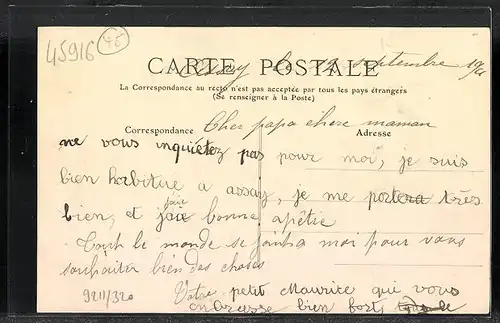 45916 46
CARTE POSTALE
Assay le 12 septembre 19
La Correspondance au recto n'est pas acceptée par tous les pays étrangers
(Se renseigner à la Poste)
Correspondance Adresse
Cher papa chere maman
ne vous inquiétez pas pour moi, je suis
bien habitue a assay, je me porte très
bien, et jaie bonne apétie
Tout le monde se joint a moi pour vous
souhaiter bien des choses
Votre petit Maurice qui vous
enbrasse bien fort
9211/320